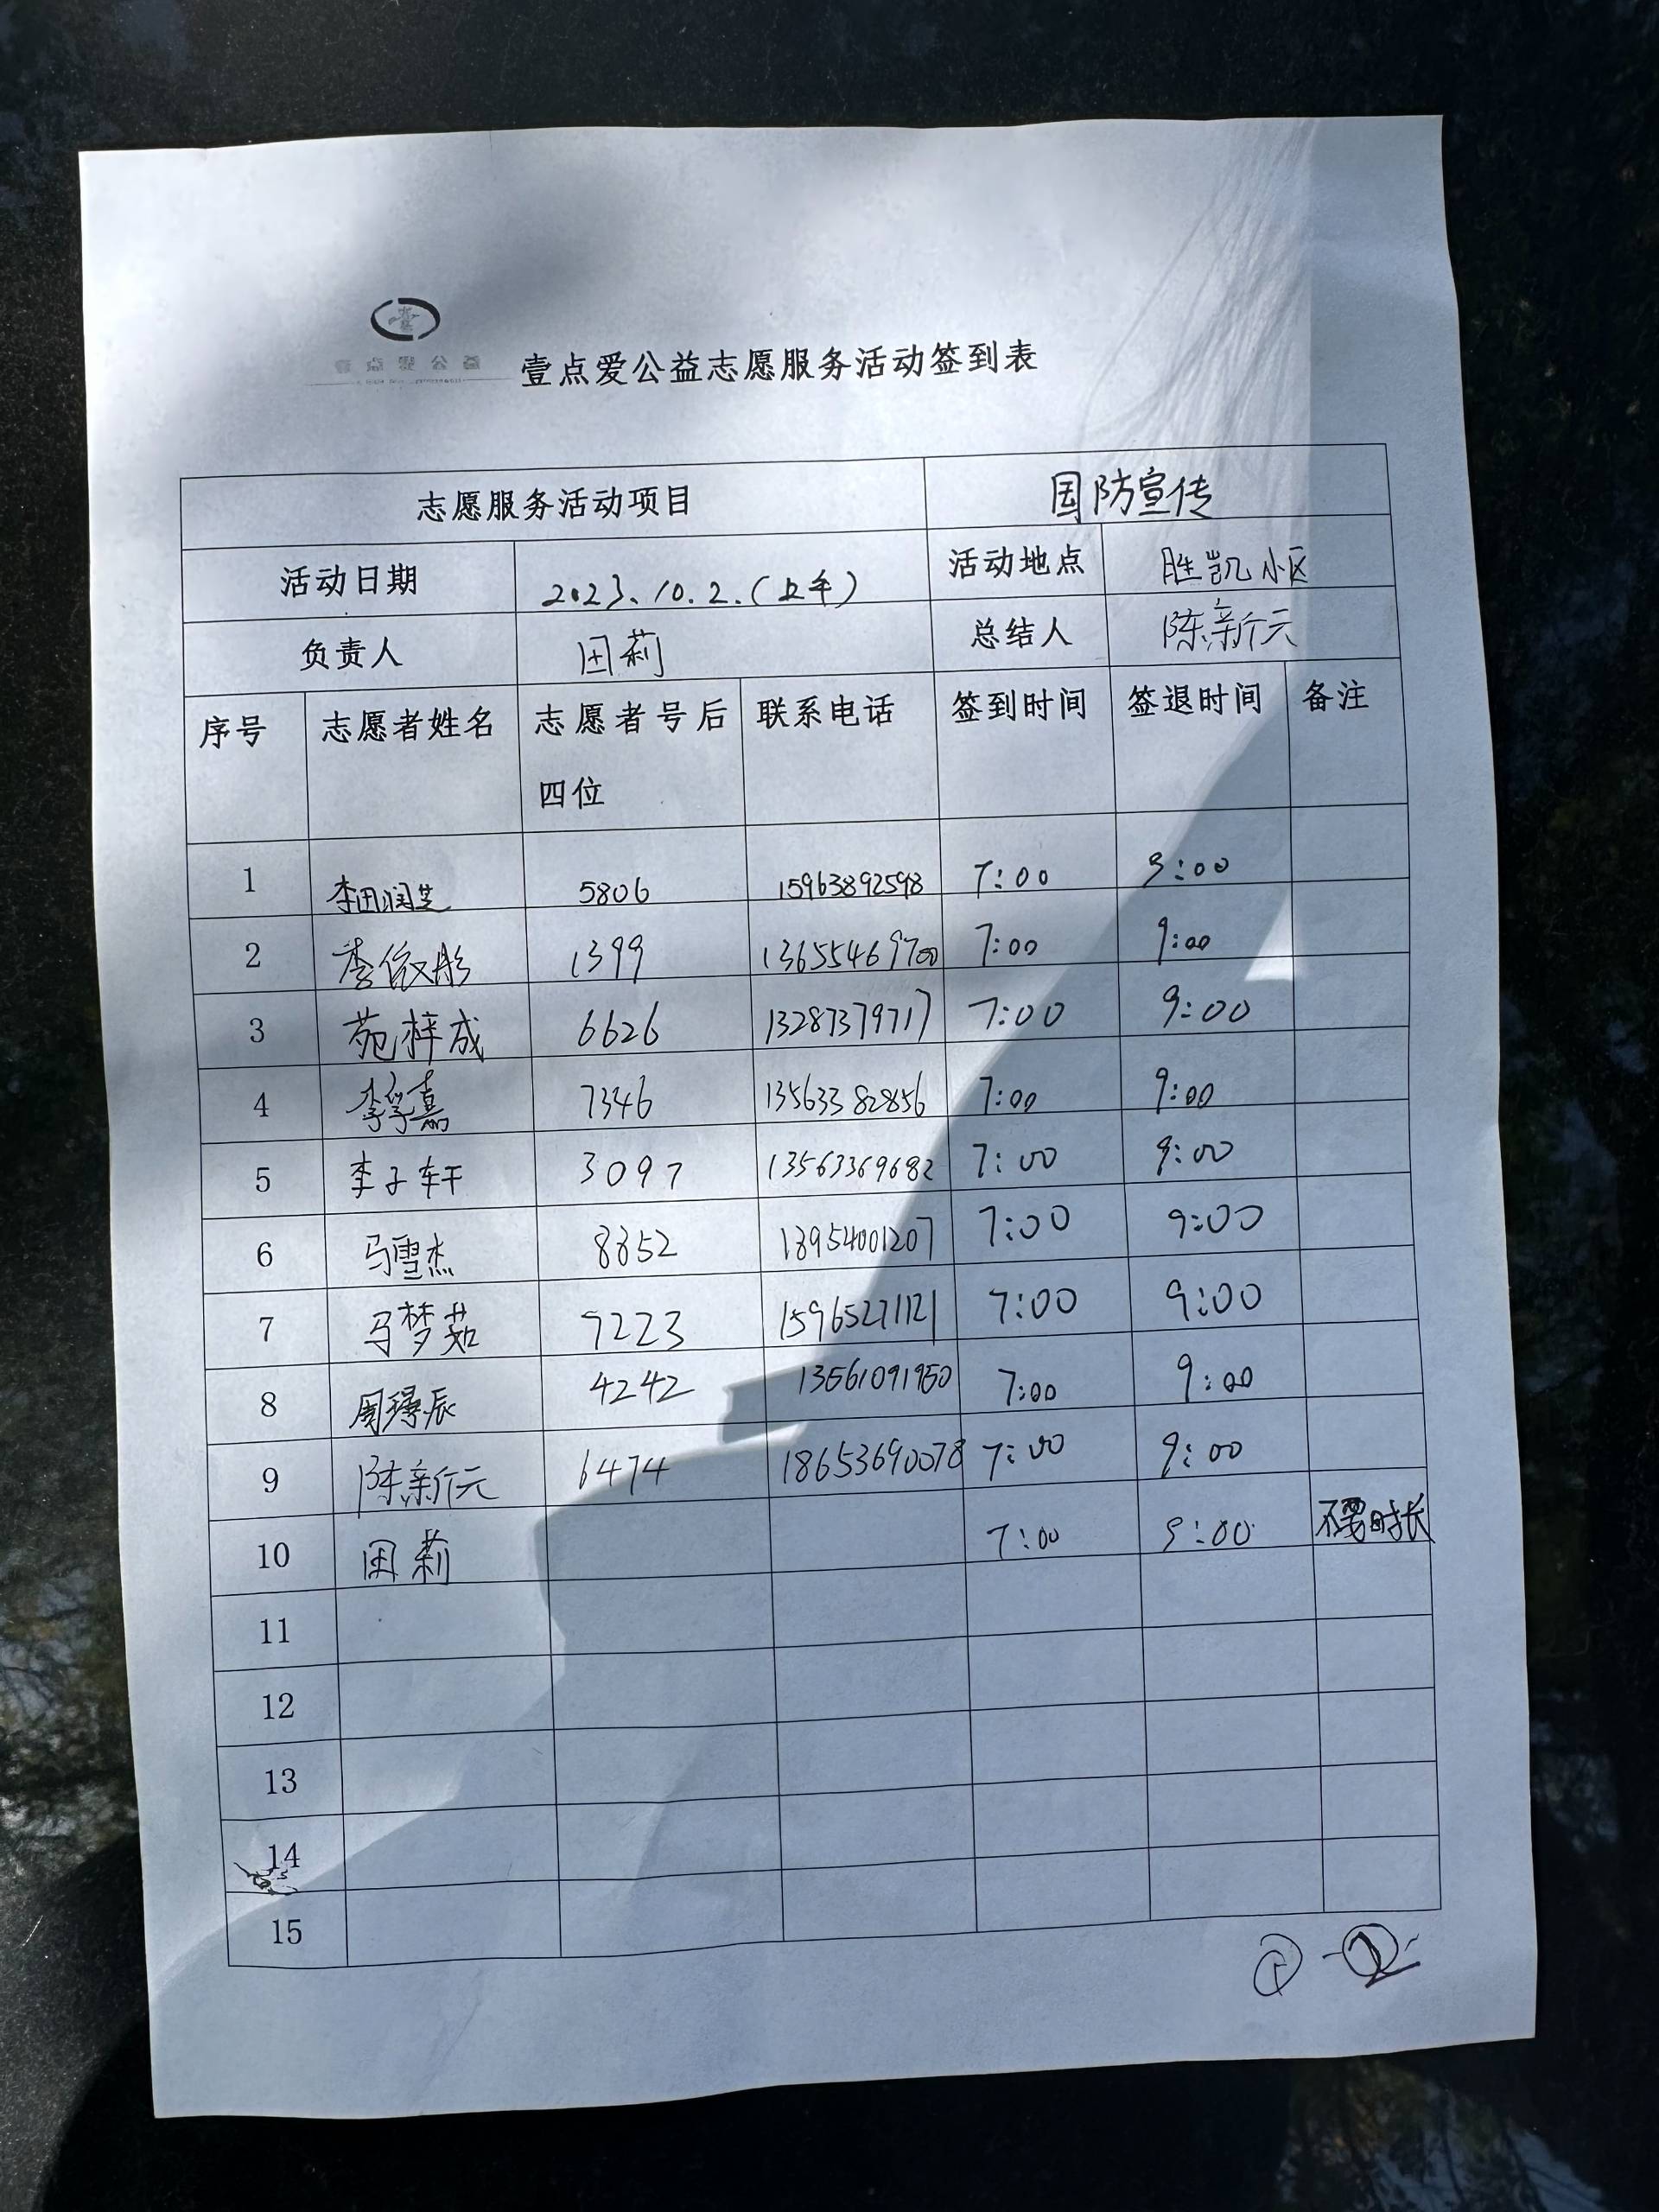 壹点爱公益
壹点爱公益志愿服务活动签到表
志愿服务活动项目 国防宣传
活动日期 2023.10.2.(上午) 活动地点 胜凯小区
负责人 田莉 总结人 陈新元
序号 志愿者姓名 志愿者号后四位 联系电话 签到时间 签退时间 备注
1 李田润芝 5806 15963892598 7:00 9:00
2 李俊彤 1399 13655469700 7:00 9:00
3 苑梓成 6626 13287379717 7:00 9:00
4 李孚嘉 7346 13563382856 7:00 9:00
5 李子轩 3097 13563369682 7:00 9:00
6 马雪杰 8852 18954001207 7:00 9:00
7 马梦茹 9223 15965271121 7:00 9:00
8 周璟辰 4242 13561091950 7:00 9:00
9 陈新元 6474 18653690078 7:00 9:00
10 田莉 7:00 9:00 不要时长
11
12
13
14
15